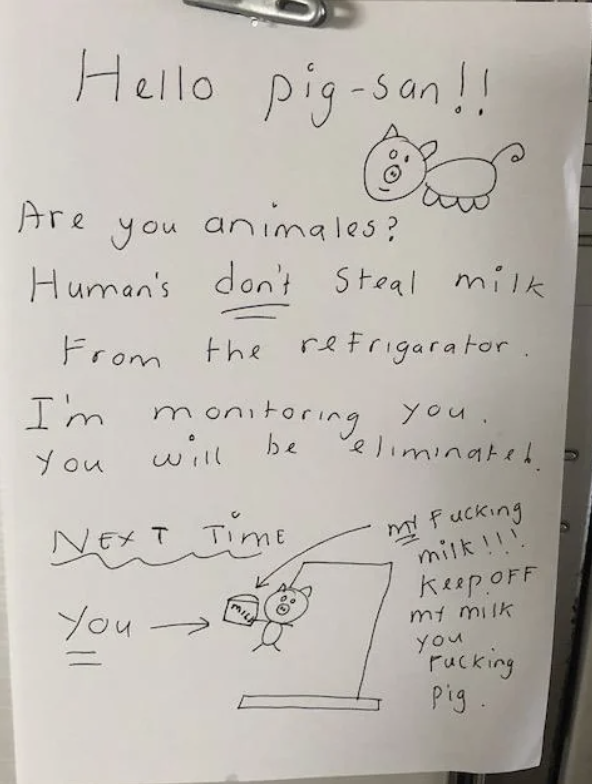 Hello pig-san!!
Are you animales?
Human's don't steal milk
From the refrigarator.
I'm monitoring you.
You will be eliminated.
NEXT TIME
You
MILK
my Fucking
milk!!!
Keep OFF
my milk
you
Fucking
pig.